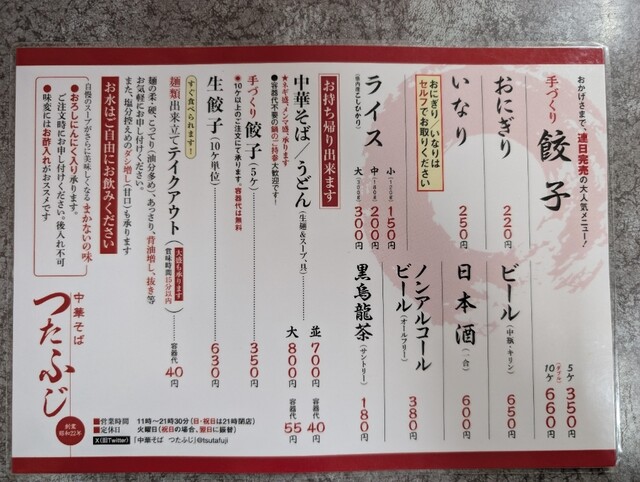 おかげさまで、連日完売の大人気メニュー!
手づくり 餃子
5ケ 350円
10ケ 660円
おにぎり 220円
ビール(中瓶・キリン) 650円
いなり 250円
日本酒(一合) 600円
おにぎり/いなりは
セルフでお取りください
ノンアルコール
ビール(オールフリー) 380円
ライス
(県内産こしひかり)
小(120g) 150円
中(180g) 200円
大 300円
黒烏龍茶(サントリー) 180円
お持ち帰り出来ます
中華そば/うどん(生麺&スープ、具)
並 700円 容器代 40円
大 800円 容器代 55円
★ネギ盛、メンマ盛、承ります
●容器代不要の鍋のご持参大歓迎です!
手づくり 餃子(5ケ) 350円
※10ケ以上のご注文にて承ります。容器代は無料
生餃子(10ケ単位) 630円
すぐ食べられます!
麺類出来立てテイクアウト(大盛も承ります 賞味時間15分以内) 容器代 40円
麺の柔・硬、こってり(油分多め)、あっさり、背油増し、抜き等
お気軽にお申し付けください。
また、塩分控えめのダシ増し(甘口)も承ります
お水はご自由にお飲みください
自慢のスープがさらに美味しくなるまかないの味
●おろしにんにく入り承ります。
ご注文時にお申し付けください。後入れ不可
●味変にはお酢入れがおススメです
中華そば
つたふじ
創業
昭和22年
■営業時間 11時〜21時30分(日・祝日は21時閉店)
■定休日 火曜日(祝日の場合、翌日に振替)
X(旧Twitter) 「中華そば つたふじ」@tsutafuji